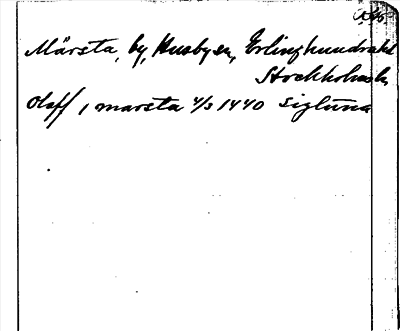 Märsta, by, Husby sn, Erlinghundra hd
Stockholms l.
Olaff i marsta 4/3 1440 Sigtuna